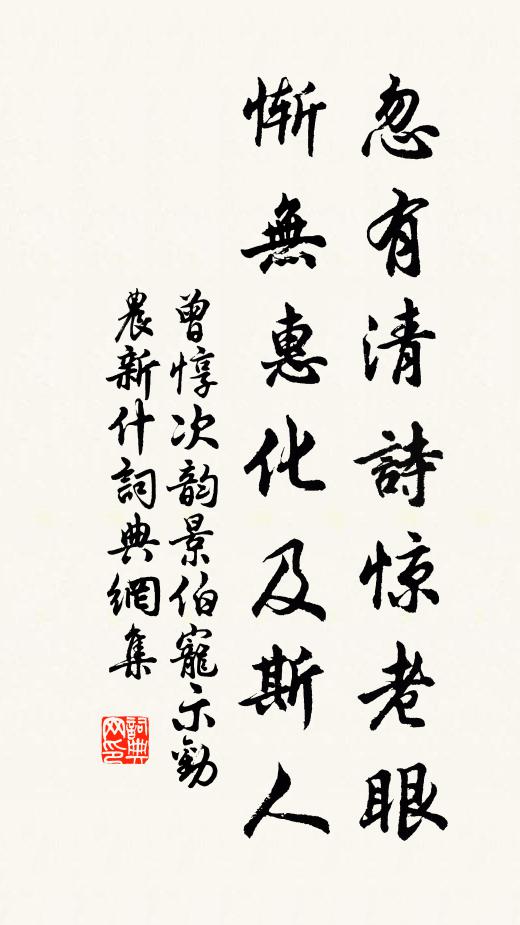 忽有清詩惊老眼
惭無惠化及斯人
曾惇次韵景伯寵示勸
農新什詞典網集
詞典
网印